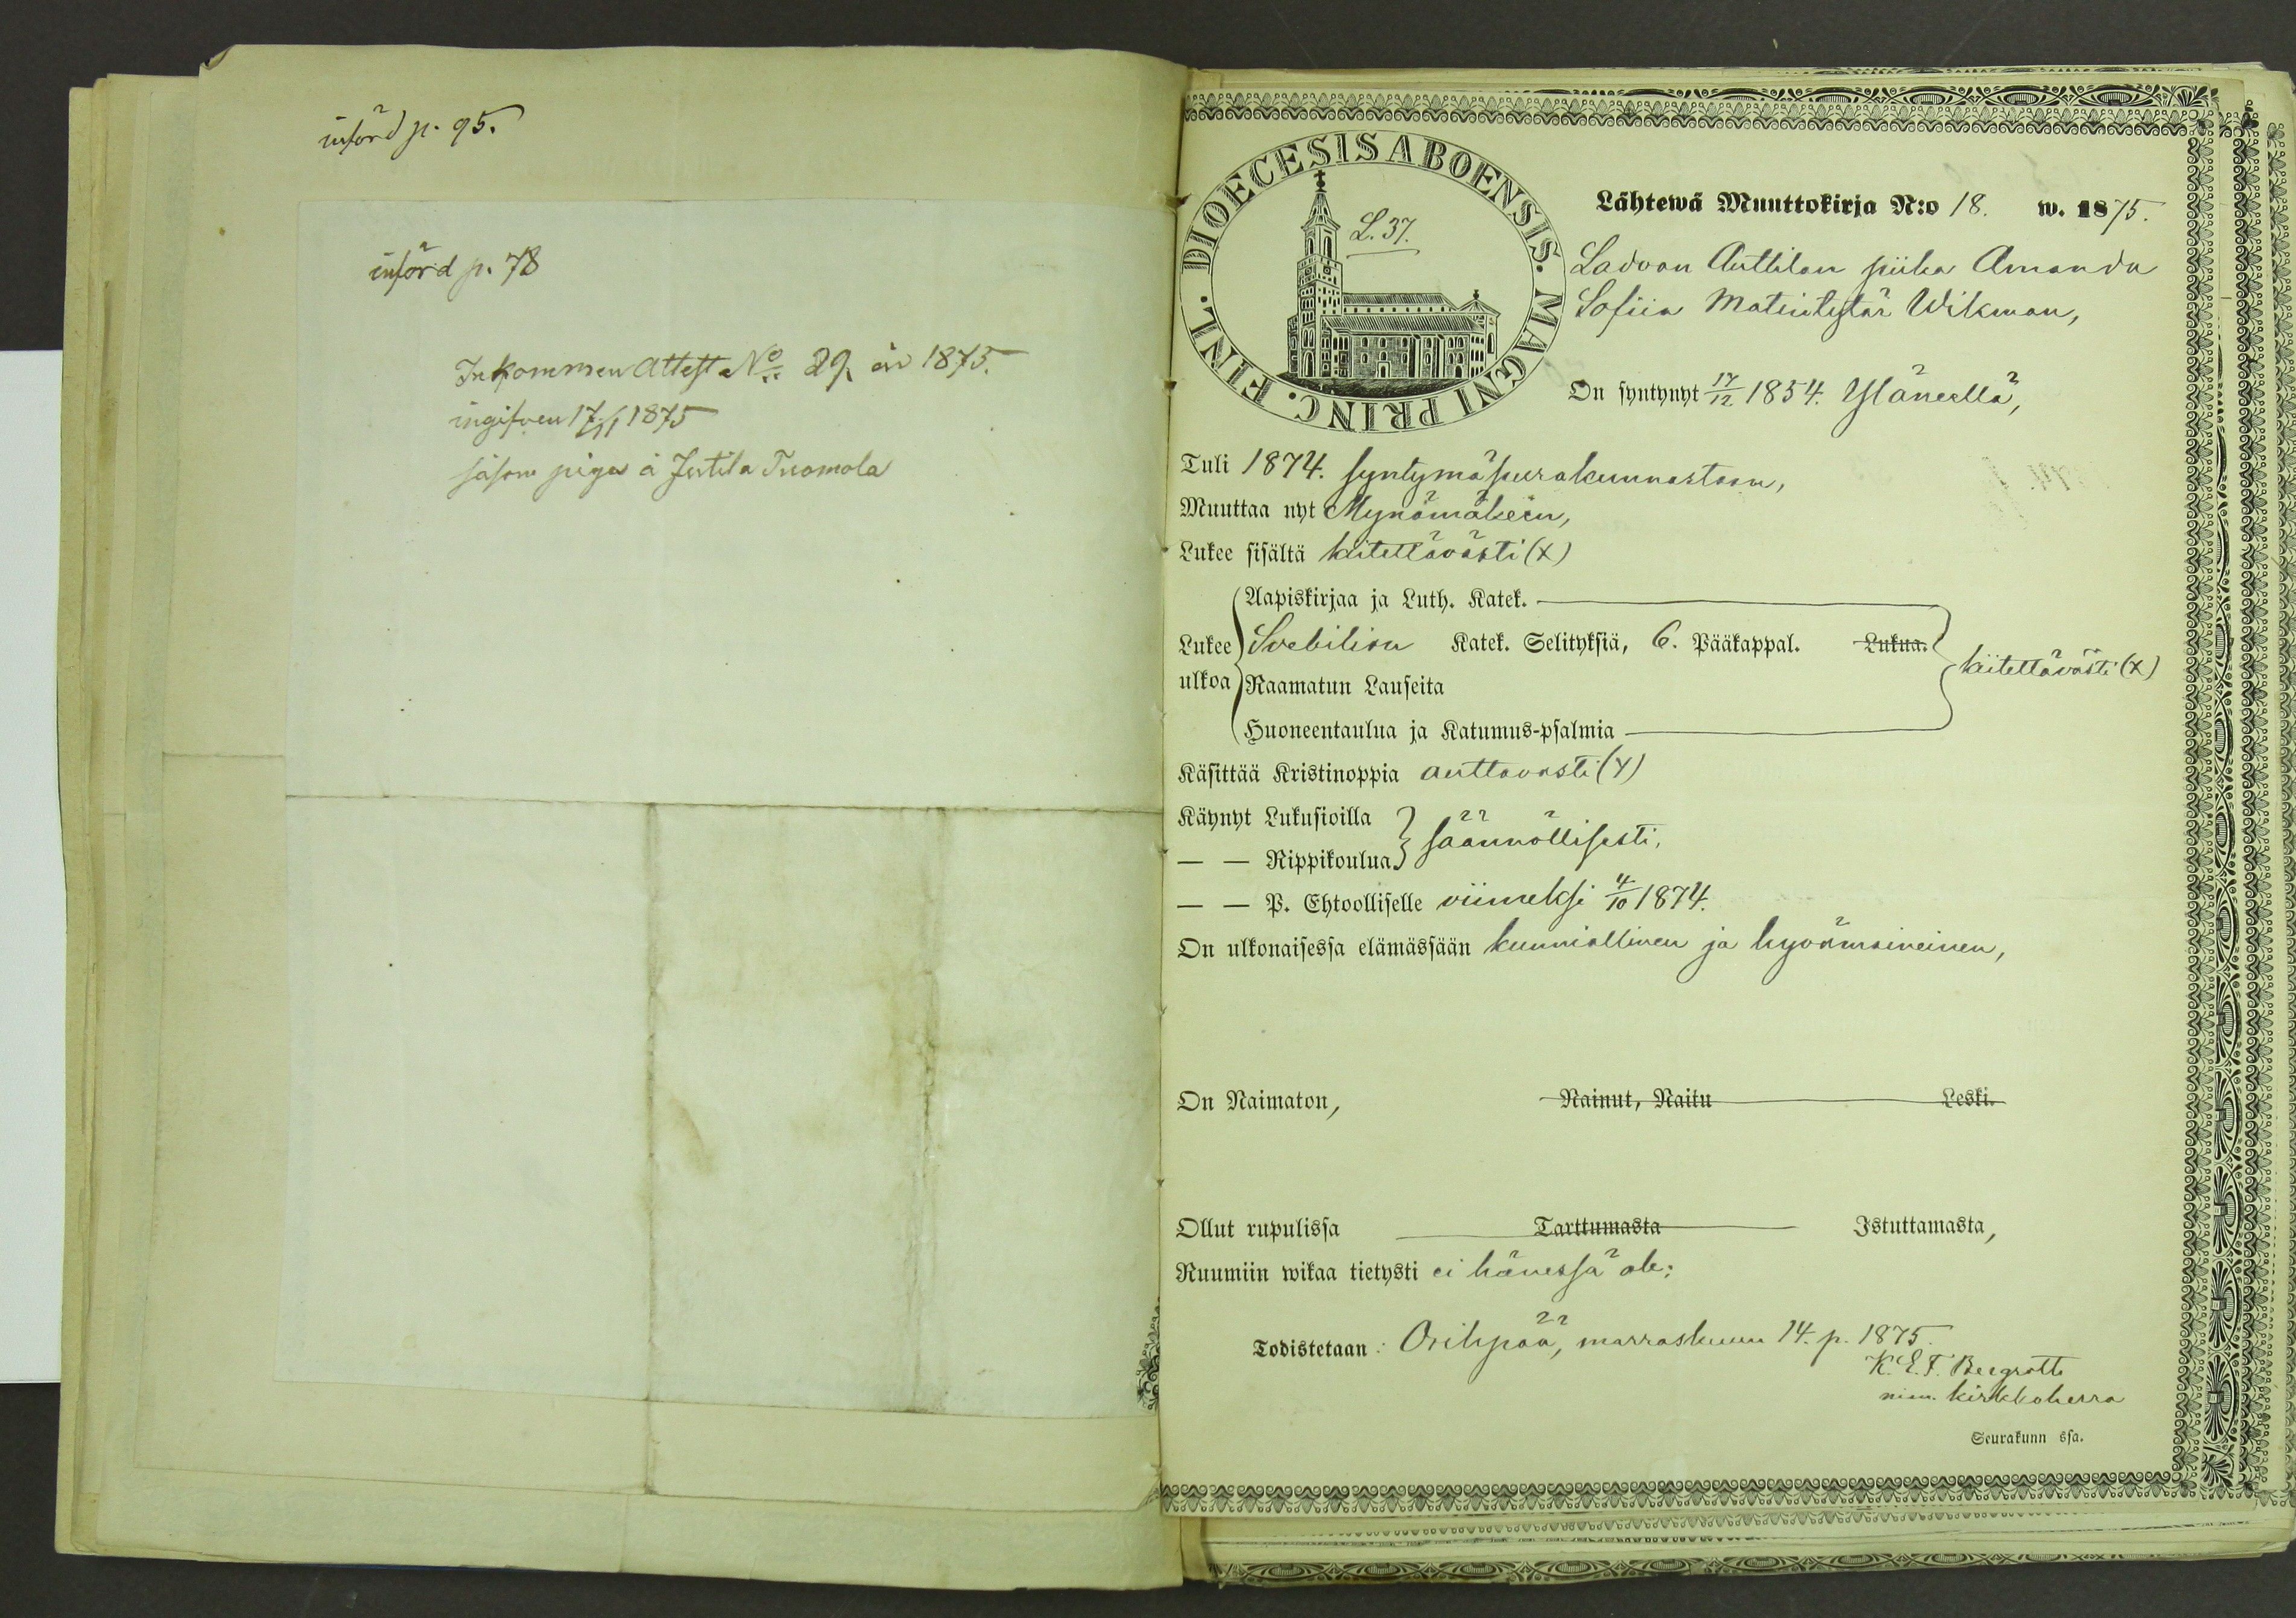 införd p. 95.
införd p. 78
Inkommen Attest No 29 år 1875.
ingifven 17/11 1875
såsom piga å Juttila Tuomola
DIOECESIS ABOENSIS. MAGNI PRINC. FINL.
L. 37.
Lähtewä Muuttokirja N:o 18. w. 1875.
Ladvan Anttilan piika Amanda
Sofiia Matintytär Wikman,
On syntynyt 17/12 1854. Yläneellä,
Tuli 1874. syntymäseurakunnastaan,
Muuttaa nyt Mynämäkeen,
Lukee sisältä kiitettävästi (X)
Aapiskirjaa ja Luth. Katek.
Lukee ulkoa Svebilion Katek. Selityksiä, 6. Pääkappal. Lukua.
Raamatun Lauseita
kiitettävästi (X)
Huoneentaulua ja Katumus-psalmia
Käsittää Kristinoppia auttavasti (Y)
Käynyt Lukusioilla
— — Rippikoulua säännöllisesti,
— — P. Ehtoolliselle viimeksi 4/10 1874.
On ulkonaisessa elämässään kunniallinen ja hyvämaineinen,
On Naimaton, Nainut, Naitu Leski.
Ollut rupulissa Tarttumasta Istuttamasta,
Ruumiin wikaa tietysti ei hänessä ole:
Todistetaan: Oripää, marraskuun 14. p. 1875.
K. E. F. Bergroth
nim. kirkkoherra
Seurakunn ssa.